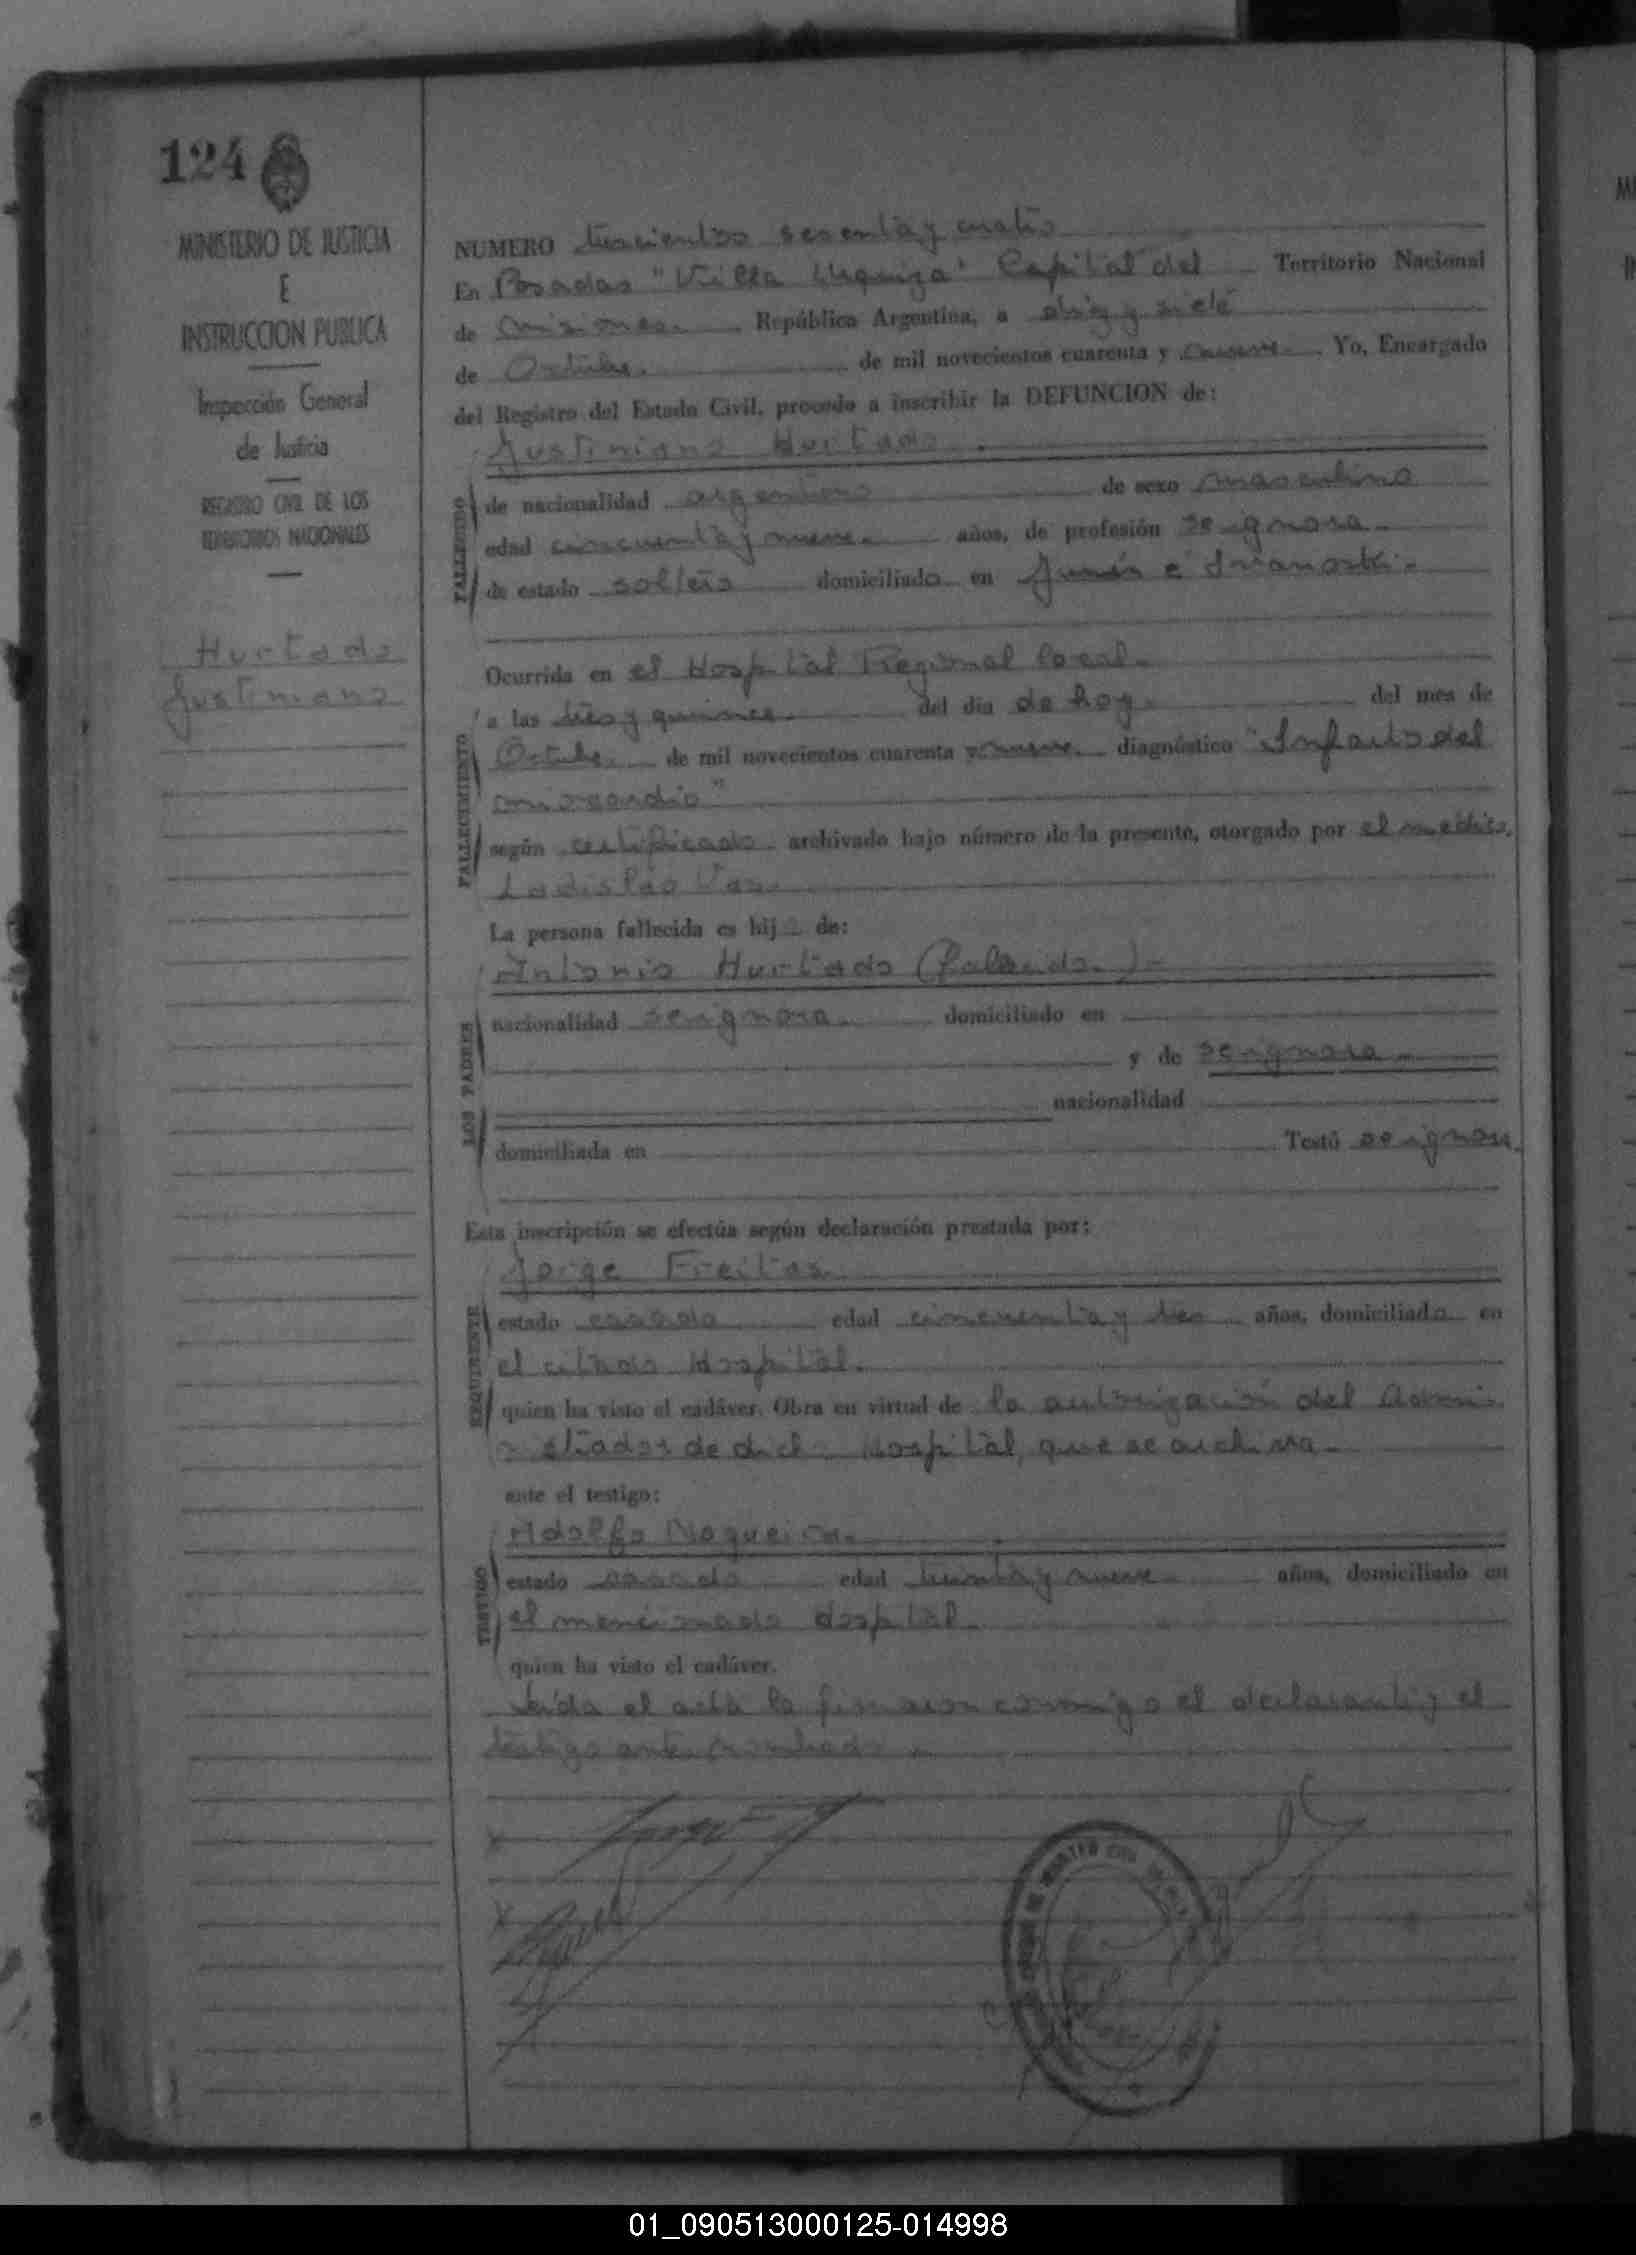 124
MINISTERIO DE JUSTICIA
E
INSTRUCCION PUBLICA
Inspección General
de Justicia
REGISTRO CIVIL DE LOS
TERRITORIOS NACIONALES
Hurtado
Justiniano
NUMERO trescientos sesenta y cuatro
En Posadas "Villa Urquiza" Capital del Territorio Nacional
de Misiones. República Argentina, a diez y siete
de Octubre. de mil novecientos cuarenta y nueve. Yo, Encargado
del Registro del Estado Civil, procedo a inscribir la DEFUNCION de:
Justiniano Hurtado
FALLECIDO
de nacionalidad argentino de sexo masculino
edad cincuenta y nueve años, de profesión se ignora
de estado soltero domiciliado en Junín e
Ocurrida en el Hospital Regional local.
FALLECIMIENTO
a las tres y quince. del día de hoy. del mes de
Octubre. de mil novecientos cuarenta y nueve. diagnóstico "Infarto del
miocardio"
según certificado archivado bajo número de la presente, otorgado por el médico,
Ladislao
La persona fallecida es hijo de:
Antonio Hurtado (fallecido.)
LOS PADRES
nacionalidad se ignora. domiciliado en
y de se ignora
nacionalidad
domiciliada en Testó se ignora.
Esta inscripción se efectúa según declaración prestada por:
Jorge Freitas
REQUIRENTE
estado casado edad cincuenta y tres años, domiciliado en
el citado Hospital.
quien ha visto el cadáver. Obra en virtud de la autorización del Admini
strador de dicho Hospital, que se archiva
ante el testigo:
Adolfo Nogueira.
TESTIGO
estado casado edad treinta y nueve años, domiciliado en
el mencionado Hospital.
quien ha visto el cadáver.
Leida el acta la firmaron conmigo el declarante y el
testigo ante nombrado
01_090513000125-014998